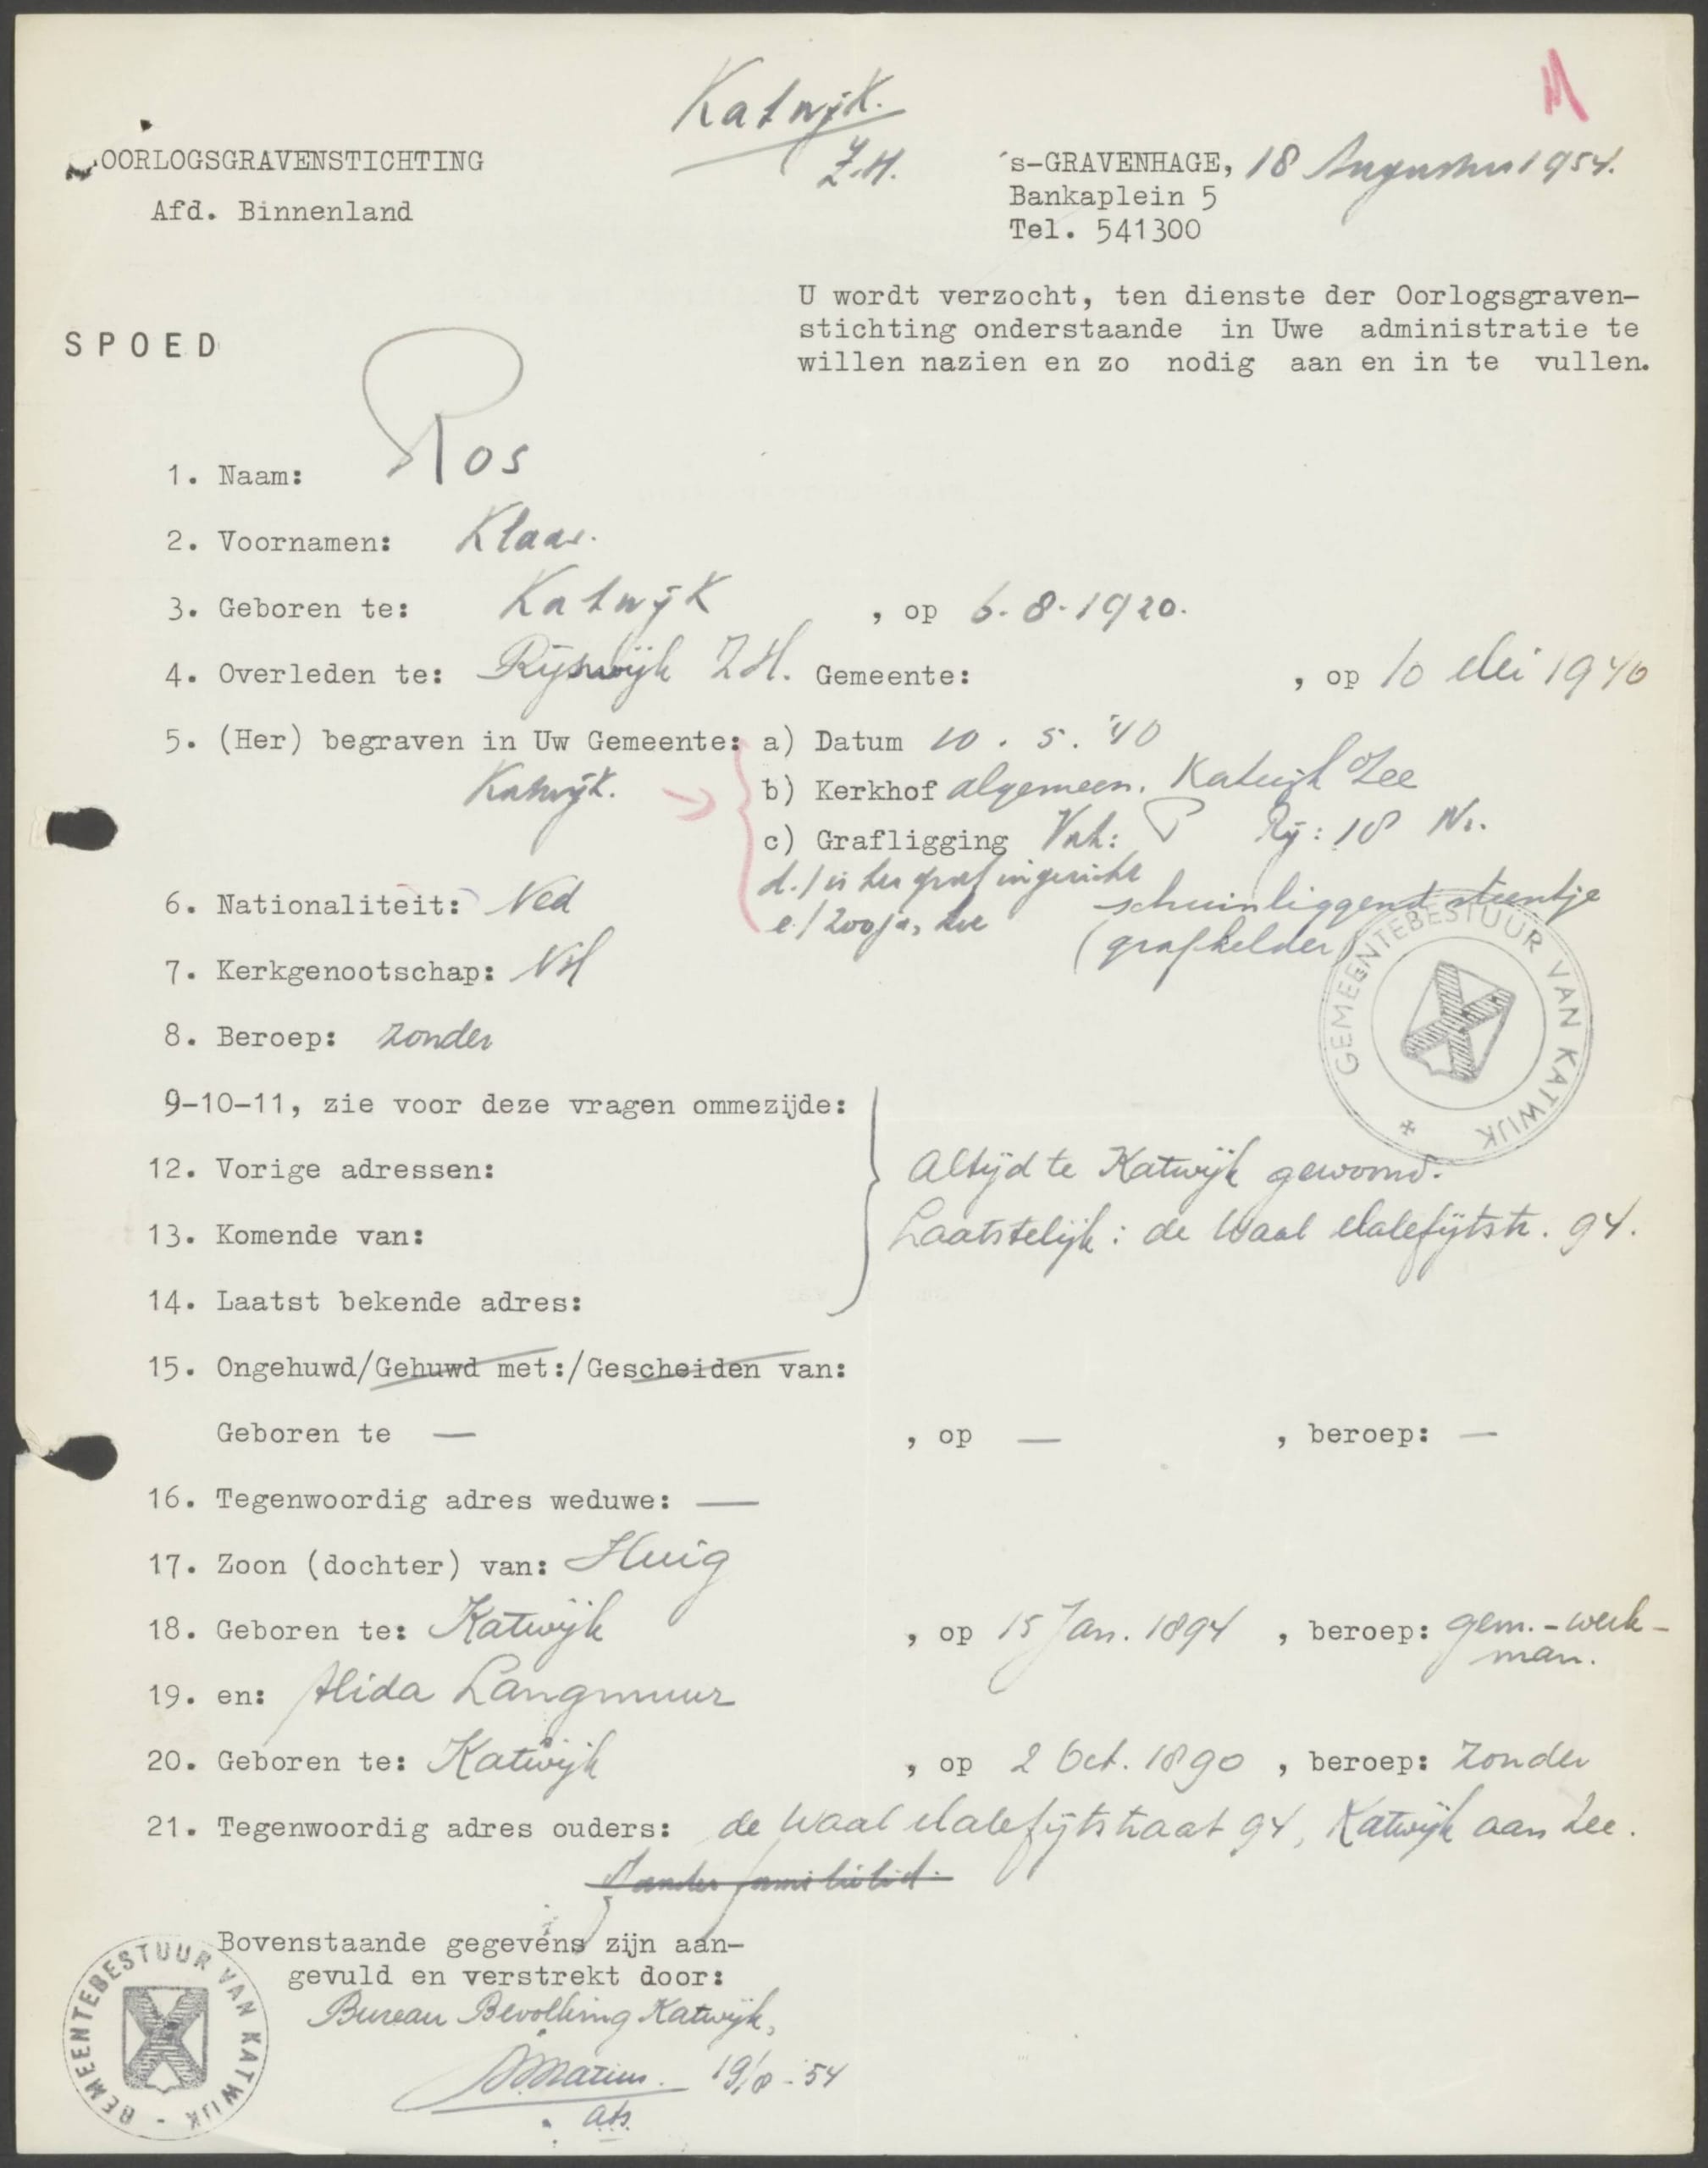 Katwijk.
Z.H.
OORLOGSGRAVENSTICHTING
Afd. Binnenland
's-GRAVENHAGE, 18 Augustus 1954.
Bankaplein 5
Tel. 541300
U wordt verzocht, ten dienste der Oorlogsgraven-
stichting onderstaande in Uwe administratie te
willen nazien en zo nodig aan en in te vullen.
SPOED
1. Naam: Ros
2. Voornamen: Klaas.
3. Geboren te: Katwijk , op 6-8-1920.
4. Overleden te: Rijswijk Z.H. Gemeente: , op 10 Mei 1940
5. (Her) begraven in Uw Gemeente: a) Datum 10.5.'40
Katwijk. b) Kerkhof algemeen. Katwijk Zee
c) Grafligging Vak: P Rij: 18 Nr.
d./ is het graf ingericht
e/ zoo ja, hoe schuinliggend steentje
(grafkelder)
6. Nationaliteit: Ned
7. Kerkgenootschap: NH
8. Beroep: zonder
GEMEENTEBESTUUR VAN KATWIJK
9-10-11, zie voor deze vragen ommezijde:
12. Vorige adressen: Altijd te Katwijk gewoond.
13. Komende van: Laatstelijk: de Waal Malefijtstr. 94.
14. Laatst bekende adres:
15. Ongehuwd/Gehuwd met:/Gescheiden van:
Geboren te — , op — , beroep: —
16. Tegenwoordig adres weduwe: —
17. Zoon (dochter) van: Huig
18. Geboren te: Katwijk , op 15 Jan. 1894 , beroep: gem.-werk-
man.
19. en: Alida Langmuur
20. Geboren te: Katwijk , op 2 Oct. 1890 , beroep: zonder
21. Tegenwoordig adres ouders: de Waal Malefijtstraat 94, Katwijk aan Zee.
Bovenstaande gegevens zijn aan-
gevuld en verstrekt door:
Bureau Bevolking Katwijk,
19/8-'54
GEMEENTEBESTUUR VAN KATWIJK